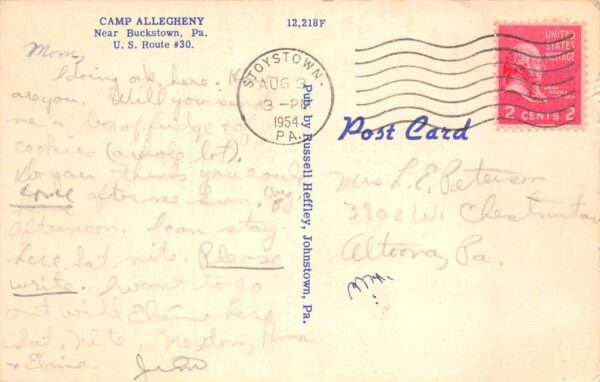 CAMP ALLEGHENY
Near Buckstown, Pa.
U. S. Route #30.
12,218F
Mom,
Doing ok, here.
are you. Will you
me a box of fudge +
cookies (a whole lot).
Do you think you could
come after me Sun. Aug
afternoon. I can stay
here Sat. nite. Please
write. I want to go
out with Elaine here
Sat. Nite
+ Elaine.
STOYSTOWN
AUG 3
3-PM
1954
PA.
Pub. by Russell Heffley, Johnstown, Pa.
Post Card
UNITED
STATES
POSTAGE
JOHN ADAMS
2 CENTS 2
Mrs L. E. Peterson
3808 W. Chestnut Av
Altoona, Pa.